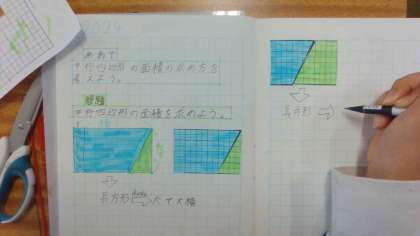 2024
めあて
平行四辺形の面積の求め方を
考えよう。
問題
平行四辺形の面積を求めよう。
長方形 たて×横
長方形